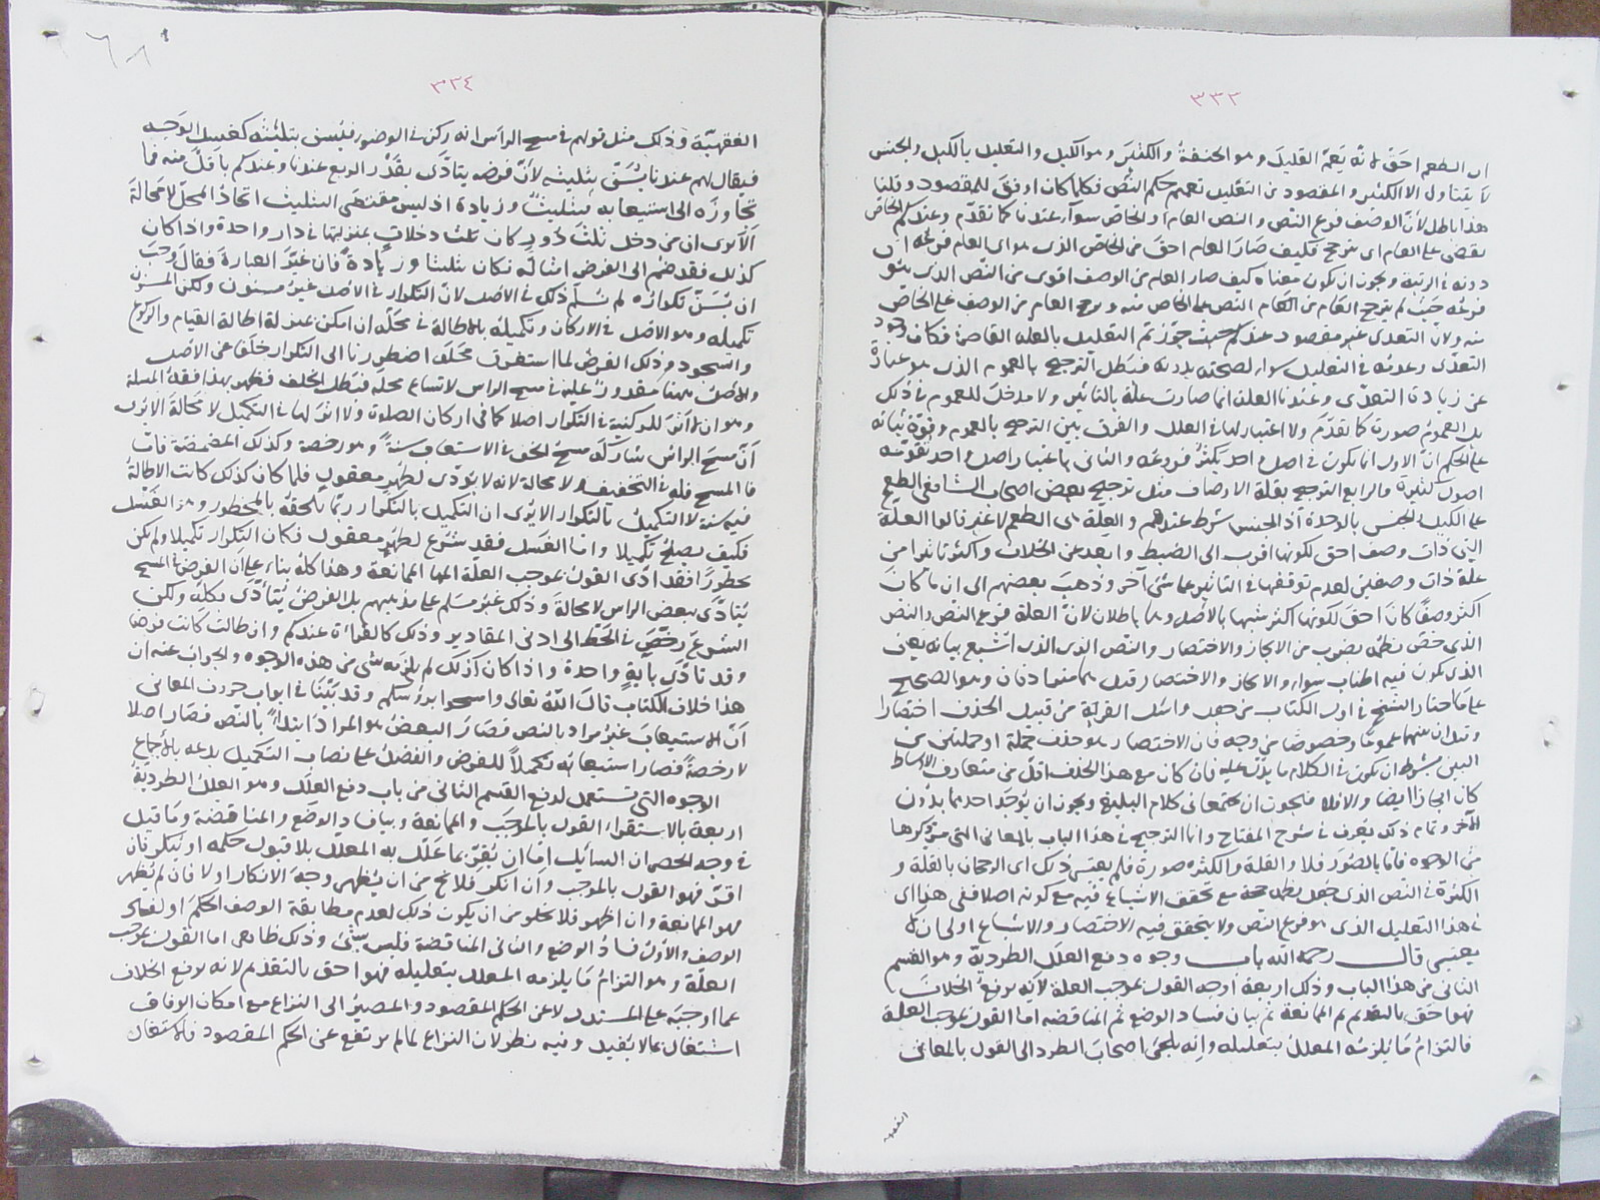 ٣٣٣
ان الطعم احق لانه يعم القليل وهو الحفنة والكثير وهو الكيل والتعليل بالكيل والجنس
لا يتناول الا الكثير والمقصود من التعليل تعميم حكم النص فكلما كان اوفق للمقصود وقلنا
هذا باطل لان الوصف فرع النص والنص العام والخاص سواء عندنا كما تقدم وعندكم الخاص
يقضى على العام اى يترجح فكيف صار العام احق من الخاص الذى هو اى العام فرعه ان
دونه فى الرتبة ويجوز ان يكون معناه كيف صار العام من الوصف اقوى من النص الذى هو
فرعه حيث لم يترجح العام من النص على الخاص منه ويرجح العام من الوصف على الخاص
منه ولان التعدى غير مقصود عندكم حيث جوزتم التعليل بالعلة القاصرة فكان وجود
التعدى وعدمه فى التعليل سواء لصحته بدونه فبطل الترجيح بالعموم الذى هو عبارة
عن زيادة التعدى وعندنا العلة انما صارت علة بالتاثير ولا مدخل للعموم فى ذلك
بل العموم صورة كما تقدم ولا اعتبار لها فى العلل والفرق بين الترجيح بالعموم وقوة ثباته
على الحكم ان الاول انما يكون فى اصل واحد يكثر فروعه والثانى باعتبار اصل واحد تقويه
اصول كثيرة والرابع الترجيح بقلة الاوصاف مثل ترجيح بعض اصحاب الشافعى الطعم
على الكيل والجنس بالوحدة اذ الجنس شرط عندهم والعلة هى الطعم لا غير قالوا العلة
التى ذات وصف احق لكونها اقرب الى الضبط وابعد عن الخلاف واكثر تاثيرا من
علة ذات وصفين لعدم توقفها فى التاثير على شئ آخر وذهب بعضهم الى ان ما كان
اكثر وصفا كان احق لكونها اكثر شبها بالاصل وهما باطلان لان العلة فرع النص والنص
الذى خص نظمه بضرب من الايجاز والاختصار والنص الذى اشبع بيانه يعنى
الذى يكون فيه اطناب سواء والايجاز والاختصار قيل هما مترادفان وهو الصحيح
على ما اختار الشيخ فى اول الكتاب من جعل واسئل القرية من قبيل الحذف اختصارا
وقيل ان بينهما عموما وخصوصا من وجه فان الاختصار هو حذف جملة او جملتين من
البين بشرط ان يكون فى الكلام ما يدل عليه فان كان مع هذا الحذف اقل من متعارف الاوساط
كان ايجازا ايضا والا فلا فيجوز ان يجتمعا فى كلام البليغ ويجوز ان يوجد احدهما بدون
الآخر وتمام ذلك يعرف فى شرح المفتاح وانما الترجيح فى هذا الباب بالمعانى التى مر ذكرها
من الوجوه فاما بالصور فلا والقلة والكثرة صورة فلم يعتبر ذلك اى الرجحان بالقلة و
الكثرة فى النص الذى جعل نظمه حجة مع تحقق الاشباع فيه مع كونه اصلا ففى هذا اى
فى هذا التعليل الذى هو فرع النص ولا يتحقق فيه الاختصار والاشباع اولى ان لا
يعتبر قال رحمه الله باب وجوه دفع العلل الطردية وهو القسم
الثانى من هذا الباب وذلك اربعة اوجه القول بموجب العلة لانه يرفع الخلاف
فهو احق بالتقديم ثم الممانعة ثم بيان فساد الوضع ثم المناقضة اما القول بموجب العلة
فالتزام ما يلزمه المعلل بتعليله وانه يلجئ اصحاب الطرد الى القول بالمعانى
الفقهية
٣٣٤
الفقهية وذلك مثل قولهم فى مسح الراس انه ركن فى الوضوء فيسن تثليثه كغسل الوجه
فيقال لهم عندنا يسن تثليثه لان فرضه يتادى بقدر الربع عندنا وعندكم باقل منه فما
تجاوزه الى استيعابه تثليث وزيادة اذ ليس مقتضى التثليث اتحاد المحل لا محالة
الا ترى ان من دخل ثلث دور كان ثلث دخلات بمنزلتها فى دار واحدة واذا كان
كذلك فقد ضم الى الفرض امثاله فكان تثليثا وزيادة فان غير العبارة فقال وجب
ان يسن تكراره لم نسلم ذلك فى الاصل لان التكرار فى الاصل غير مسنون ولكن المسنون
تكميله وهو الاصل فى الاركان وتكميله بالاطالة فى محله ان امكن بمنزلة اطالة القيام والركوع
والسجود وذلك الفرض لما استغرق محله اضطررنا الى التكرار خلفا عن الاصل
والاصل ههنا مقدور عليه فى مسح الراس لاتساع محله فبطل الخلف فظهر بهذا فقه المسئلة
وهو ان لا اثر للركنية فى التكرار اصلا كما فى اركان الصلوة ولا اثر لها فى التكميل لا محالة الا ترى
ان مسح الراس شاركه مسح الخف فى الاستيعاب سنة وهو رخصة وكذلك المضمضة فاما
فاالمسح فله فى التخفيف لا محالة لانه لا يؤدى لطهر معقول فلما كان كذلك كانت الاطالة
فيه سنة لا التكميل بالتكرار الا ترى ان التكميل بالتكرار ربما يلحقه بالمحظور وهو الغسل
فكيف يصلح تكميلا واما الغسل فقد شرع لطهر معقول فكان التكرار تكميلا ولم يكن
محظورا فقد ادى القول بموجب العلة الى الممانعة وهذا كله بناء على ان الفرض فى المسح
يتادى ببعض الراس لا محالة وذلك غير مسلم على مذهبهم بل الفرض يتادى بكله ولكن
الشرع رخص فى الحط الى ادنى المقادير وذلك كالقراءة عندكم وان طالت كانت فرضا
وقد تادى باية واحدة واذا كان كذلك لم يلزمه شئ من هذه الوجوه والجواب عنه ان
هذا خلاف الكتاب قال الله تعالى وامسحوا برؤسكم وقد بينا فى ابواب حروف المعانى
ان الاستيعاب غير مراد بالنص فصار البعض هو المراد ابتداء بالنص فصار اصلا
لا رخصة فصار استيعابه تكميلا للفرض والفضل على نصاب التكميل بدعة بالاجماع
الوجوه التى تستعمل لدفع القسم الثانى من باب دفع العلل وهو العلل الطردية
اربعة بالاستقراء القول بالموجب والممانعة وبيان فساد الوضع والمناقضة وما قيل
فى وجه الحصر ان السائل اما ان يقر بما علل به المعلل بلا قبول حكمه او ينكر فان
اقر فهو القول بالموجب وان انكر فلا يخ من ان يظهر وجه الانكار اولا فان لم يظهر
فهو الممانعة وان اظهر فلا يخلو من ان يكون ذلك لعدم مطابقة الوصف الحكم او لفساد
الوصف والاول فساد الوضع والثانى المناقضة فليس بشئ وذلك ظاهر اما القول بموجب
العلة وهو التزام ما يلزمه المعلل بتعليله فهو احق بالتقديم لانه يرفع الخلاف
عما اوجبه على المستدل لا عن الحكم المقصود والمصير الى النزاع مع امكان الوفاق
اشتغال بما لا يفيد وفيه نظر لان النزاع لما لم يرتفع عن الحكم المقصود فالاشتغال